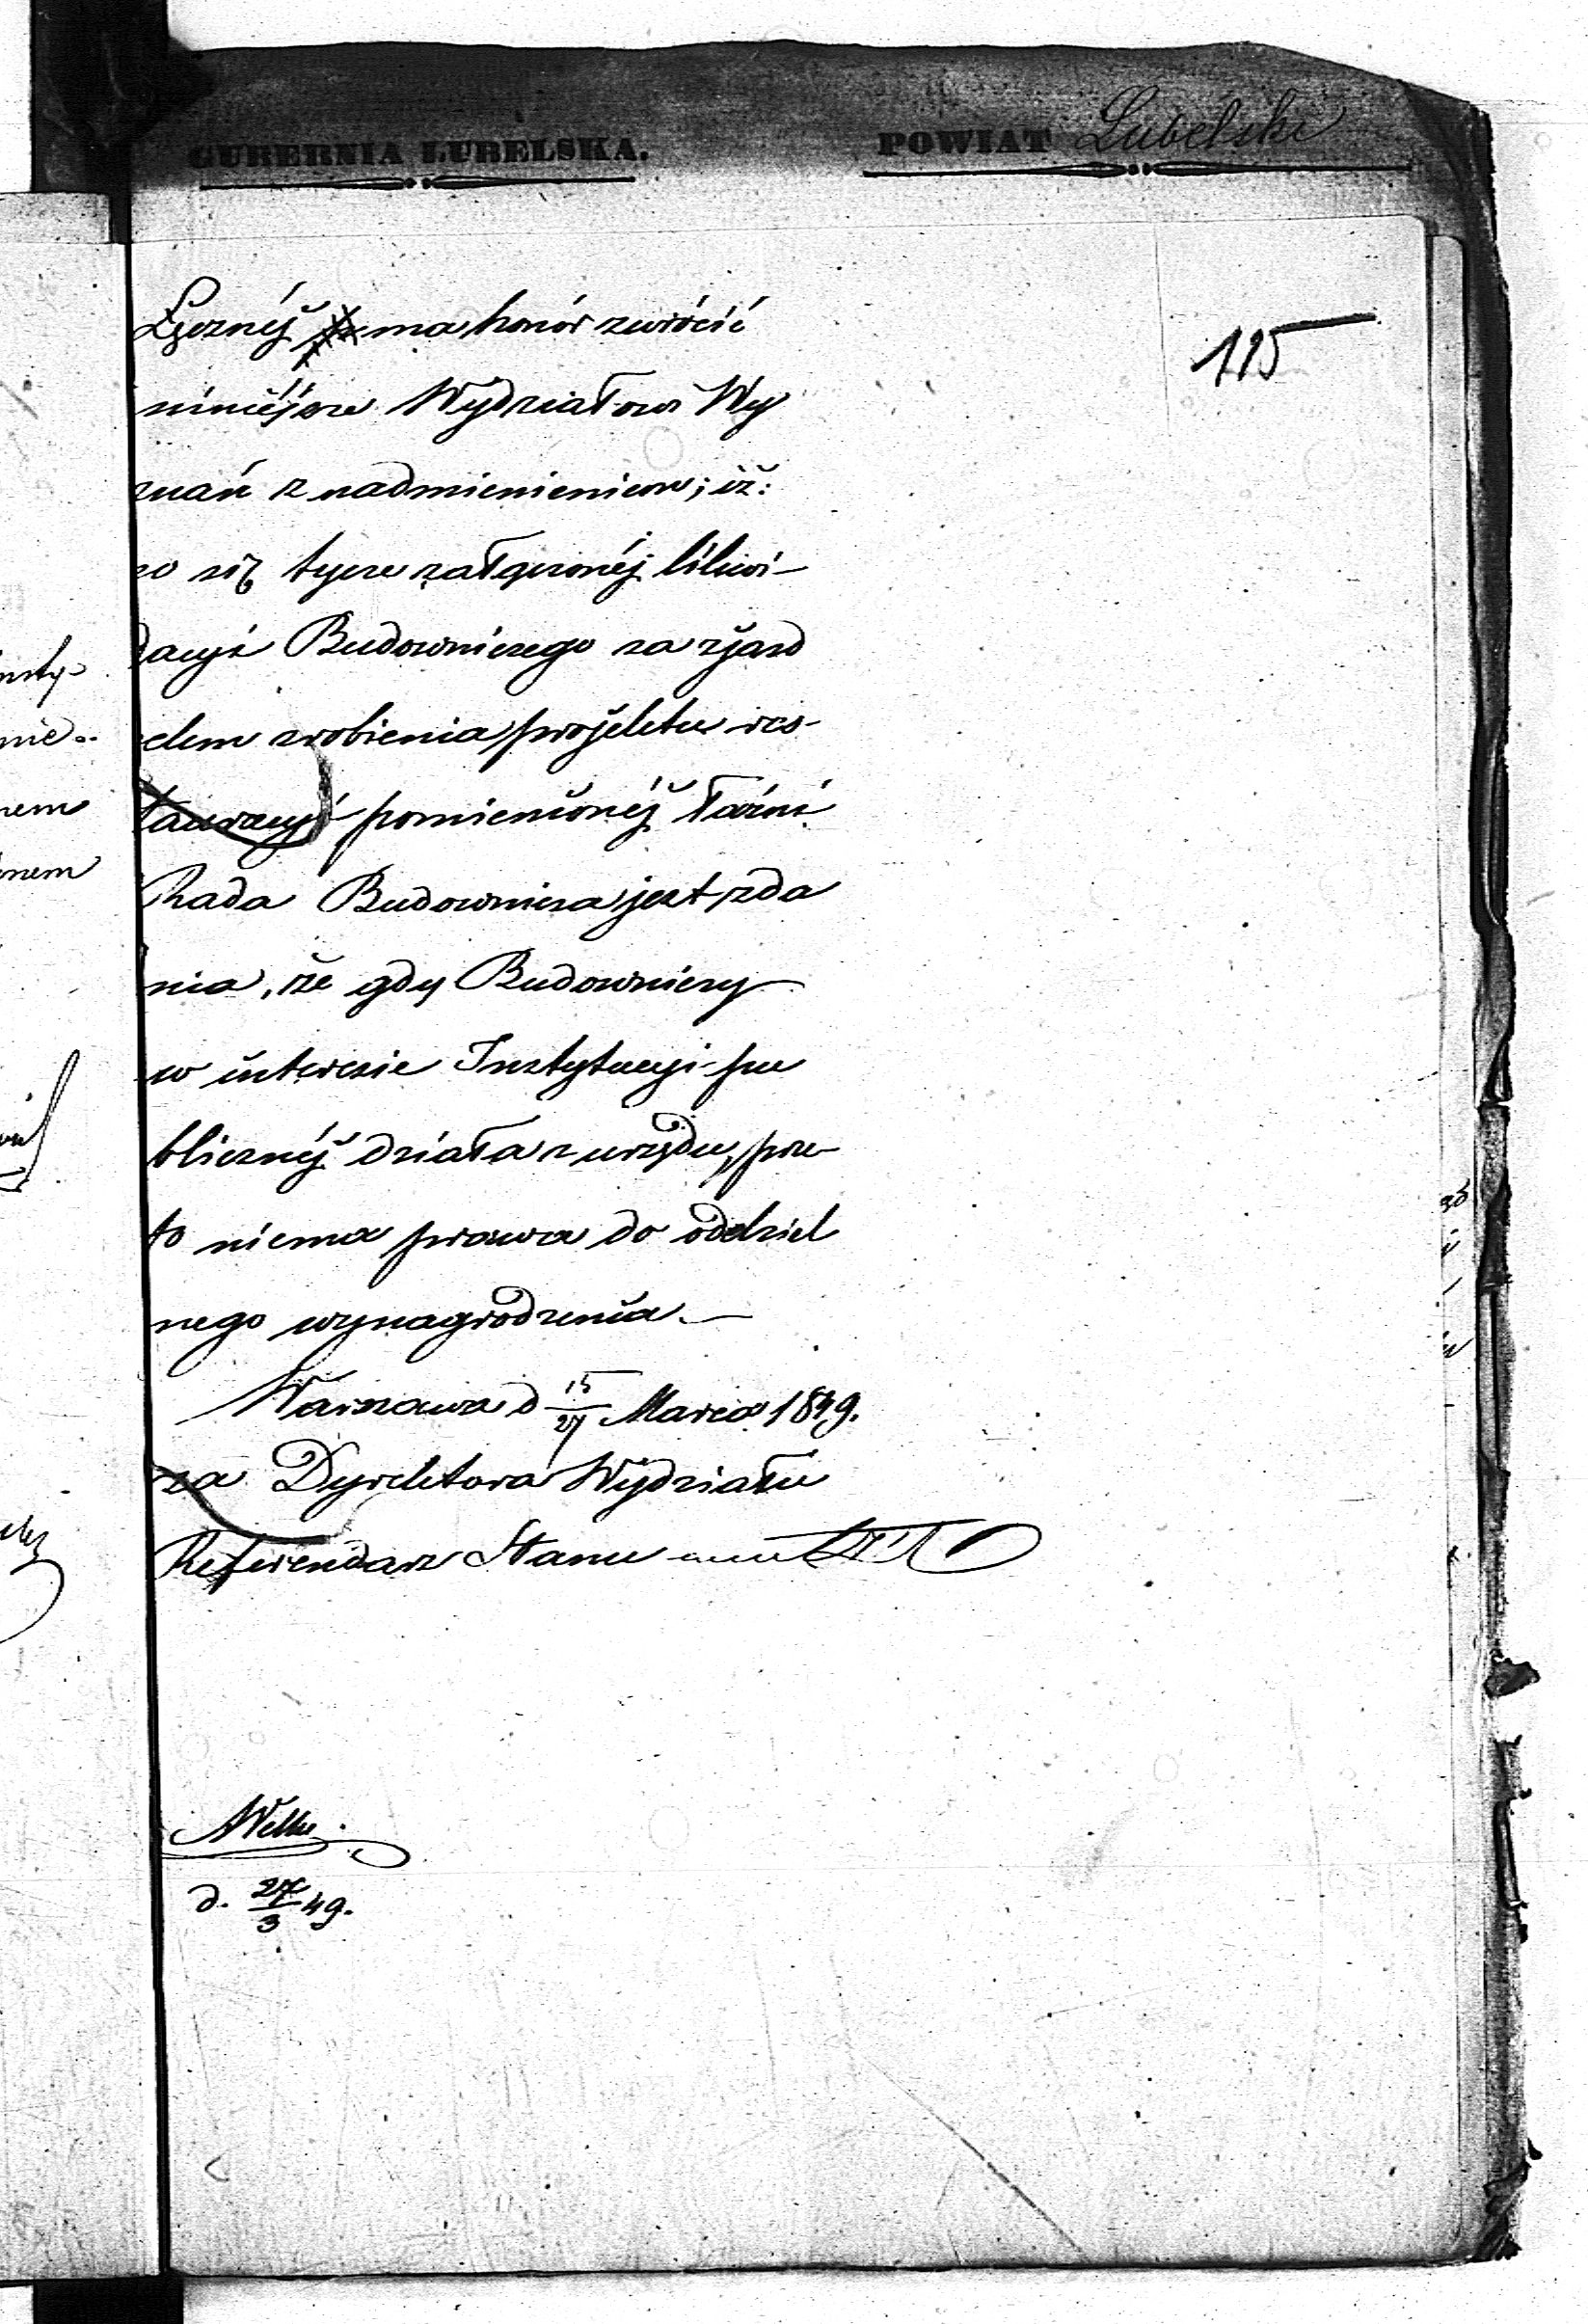 GUBERNIA LUBELSKA. POWIAT Lubelski
115
Łęcznéj ma honór zwrócić
niniéjsze Wydziałowi Wy
znań z nadmienieniem; iż:
co się tycze załączonéj likwi-
dacyi Budowniczego za zjazd
celem zrobienia projektu res-
tauracyi pomienionéj łaźni
Rada Budownicza jest zda
nia, że gdy Budowniczy
w interesie Instytucyi pu
blicznéj działa z urzędu, prze-
to niema prawa do oddziel
nego wynagrodzenia.—
Warszawa d 15/27 Marca 1849.
za Dyrektora Wydziału
Referendarz Stanu
d. 27/3 49.